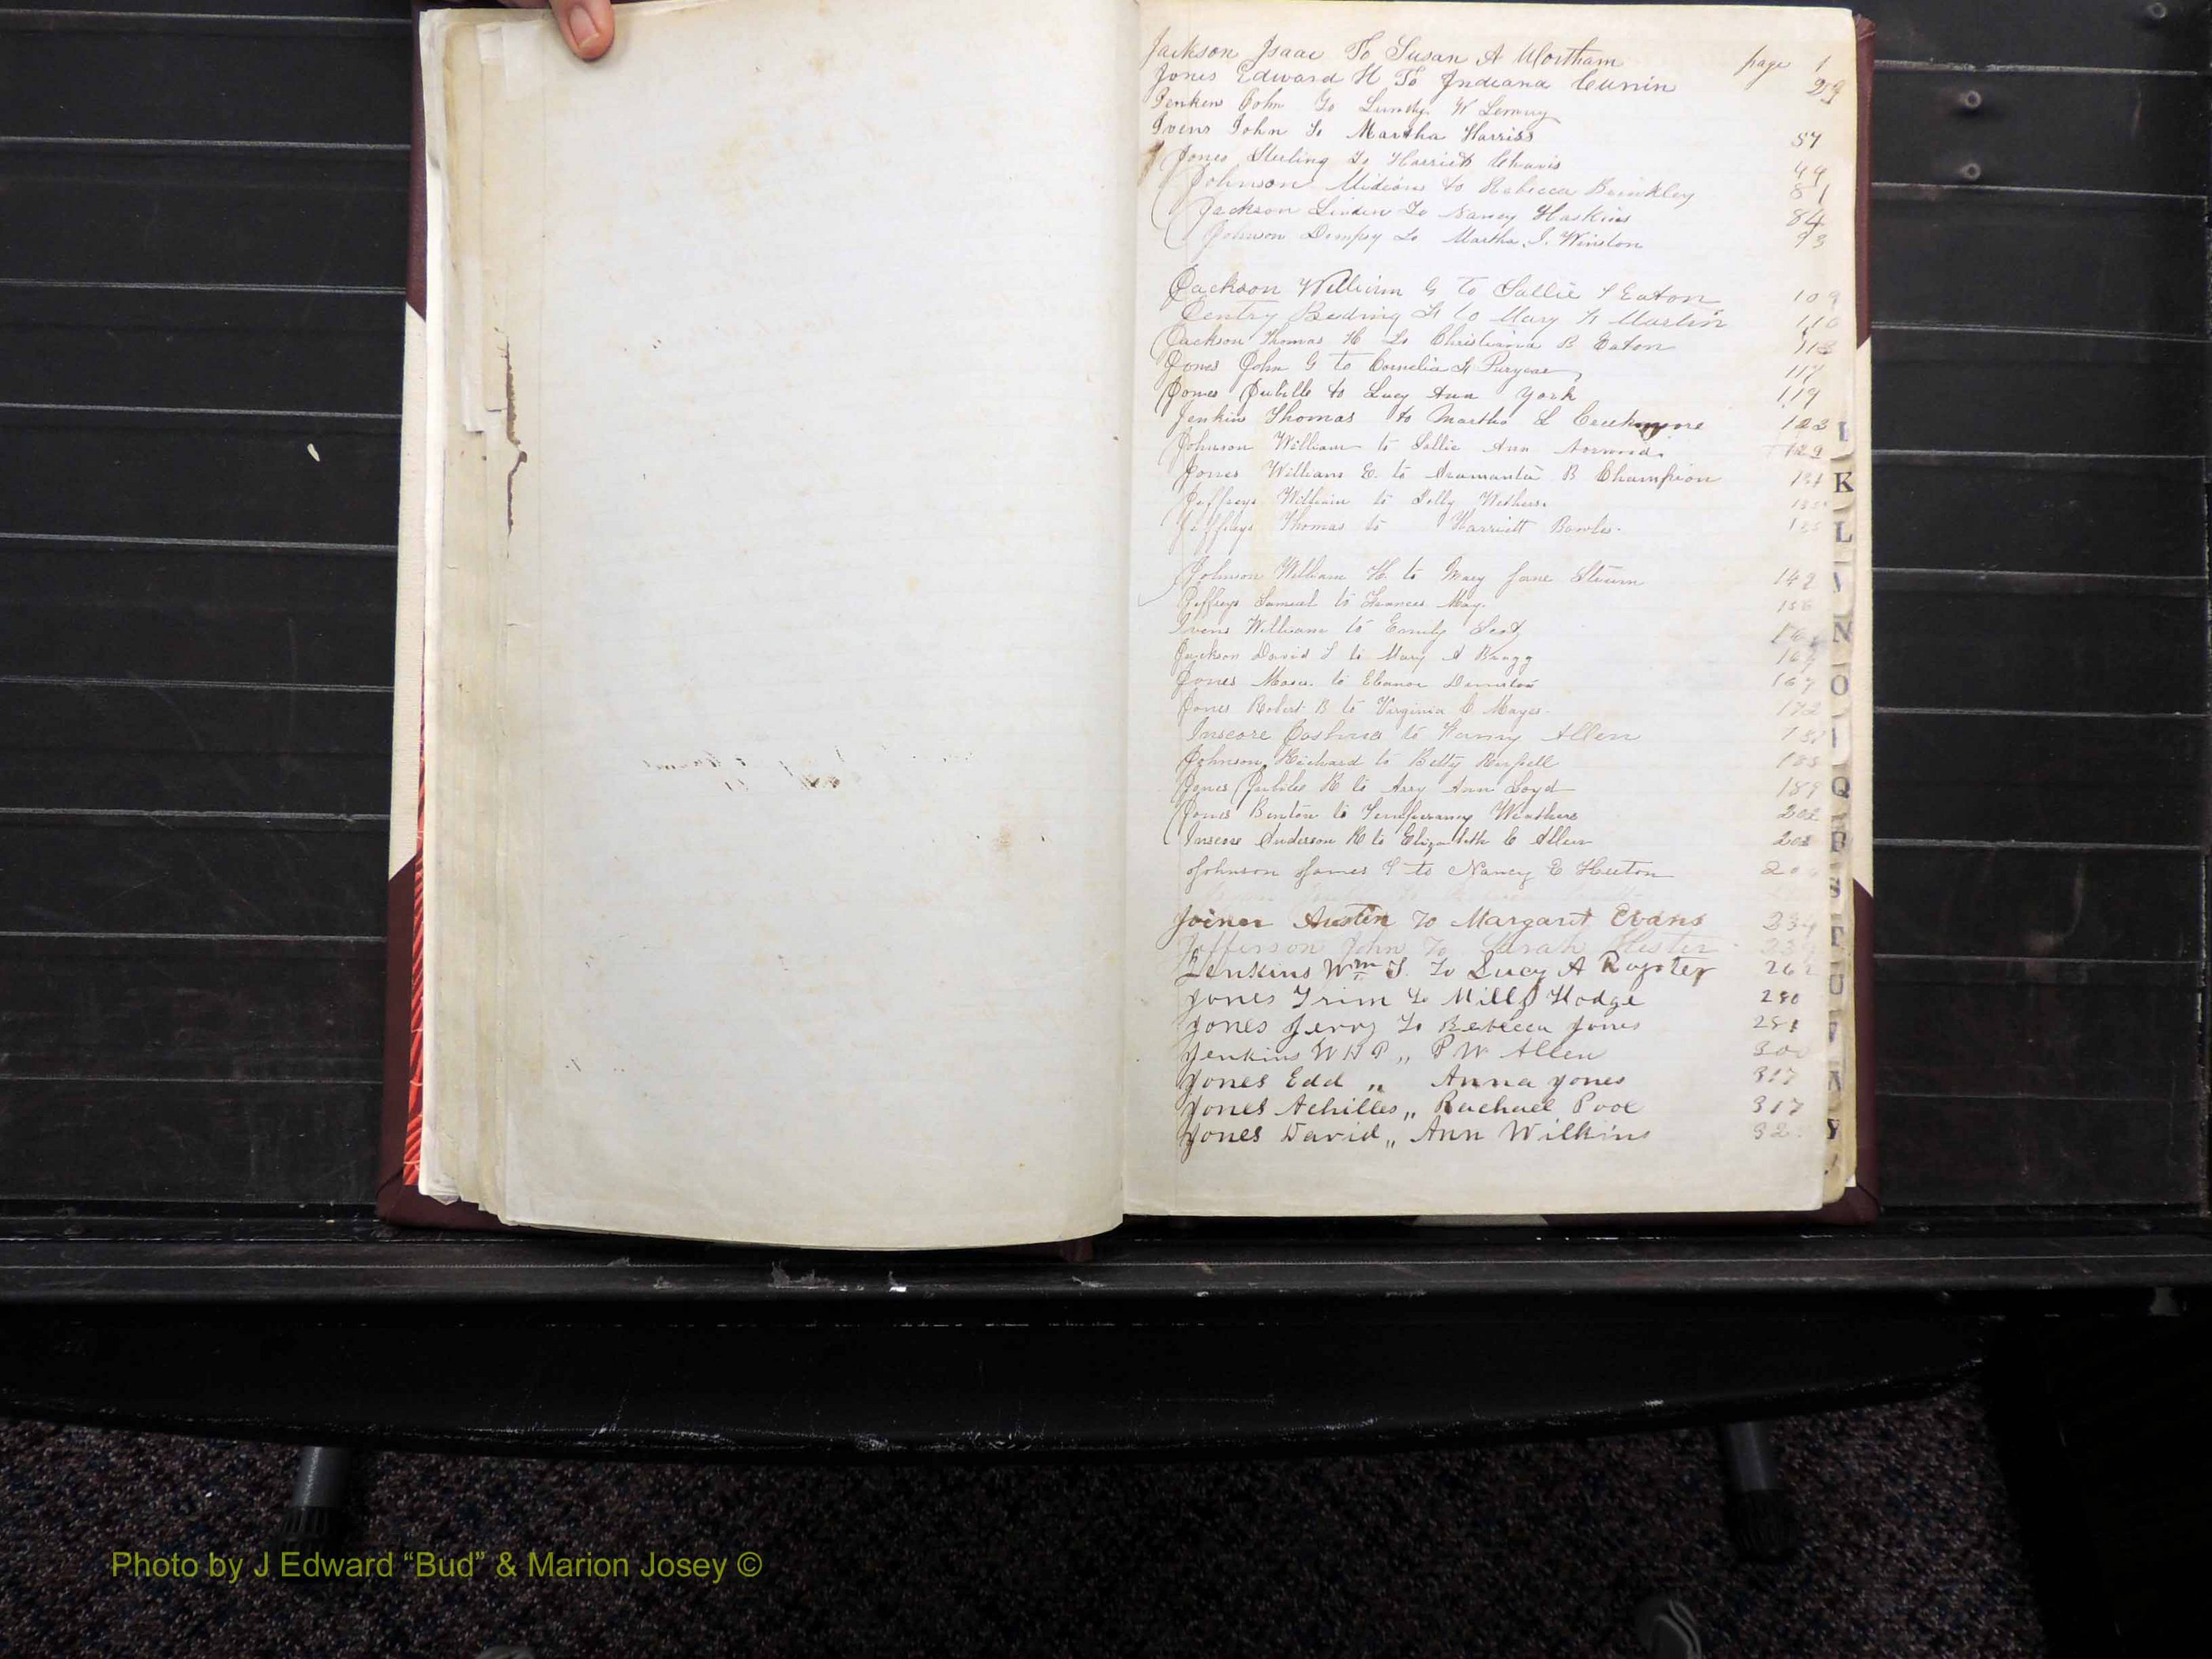 Jackson Isaac To Susan A Wortham page 1
Jones Edward H To Indiana Cunin 29
Jenken John To W
Ivens John To Martha Harriss 57
Jones Sterling To Harriet Chavis 44
Johnson to Rebecca Brinkley 81
Jackson Linden To Nancy Haskins 84
Johnson Dempsy To Martha J. Winston 93
Jackson William G To Sallie Eaton 109
Gentry Beding H to Mary H Martin 110
Jackson Thomas H To Christiana B Eaton 113
Jones John G to Cornelia H Puryear 117
Jones Jubille to Lucy Ann York 119
Jenkins Thomas to Martha L Creekmore 123
Johnson William to Sallie Ann Norwood. 129
Jones William E. to Aramanta B Champion 131
Jeffreys William to Wethers.
Jeffreys Thomas to Harriett Bowles.
Johnson William H. to Mary Jane 142
Jeffreys Samuel to Frances May.
Ivens William to Emily
Jackson David S to Mary A Bragg
Jones to Eleanor 167
Jones Robert B to Virginia C Mayes 172
Inscore Joshua to Fanny Allen
Johnson Richard to Betty Russell 188
Jones Jubilee R to Arry Ann Loyd 189
Jones Benton to Temperancy Weathers 202
Inscore Anderson H to Elizabeth C Allen 203
Johnson James to Nancy E Heuton
Joiner Austin To Margaret Evans 234
Jefferson John To Sarah Hester
Jenkins Wm S. To Lucy A Royster 262
Jones Trim To Milly Hodge 280
Jones Jerry To Rebecca Jones 281
Jenkins W H P ,, P W Allen 300
Jones Edd ,, Anna Jones 317
Jones Achilles ,, Rachael Pool 317
Jones David ,, Ann Wilkins
K
L
N
O
Q
R
S
T
U
Y
Photo by J Edward “Bud” & Marion Josey ©